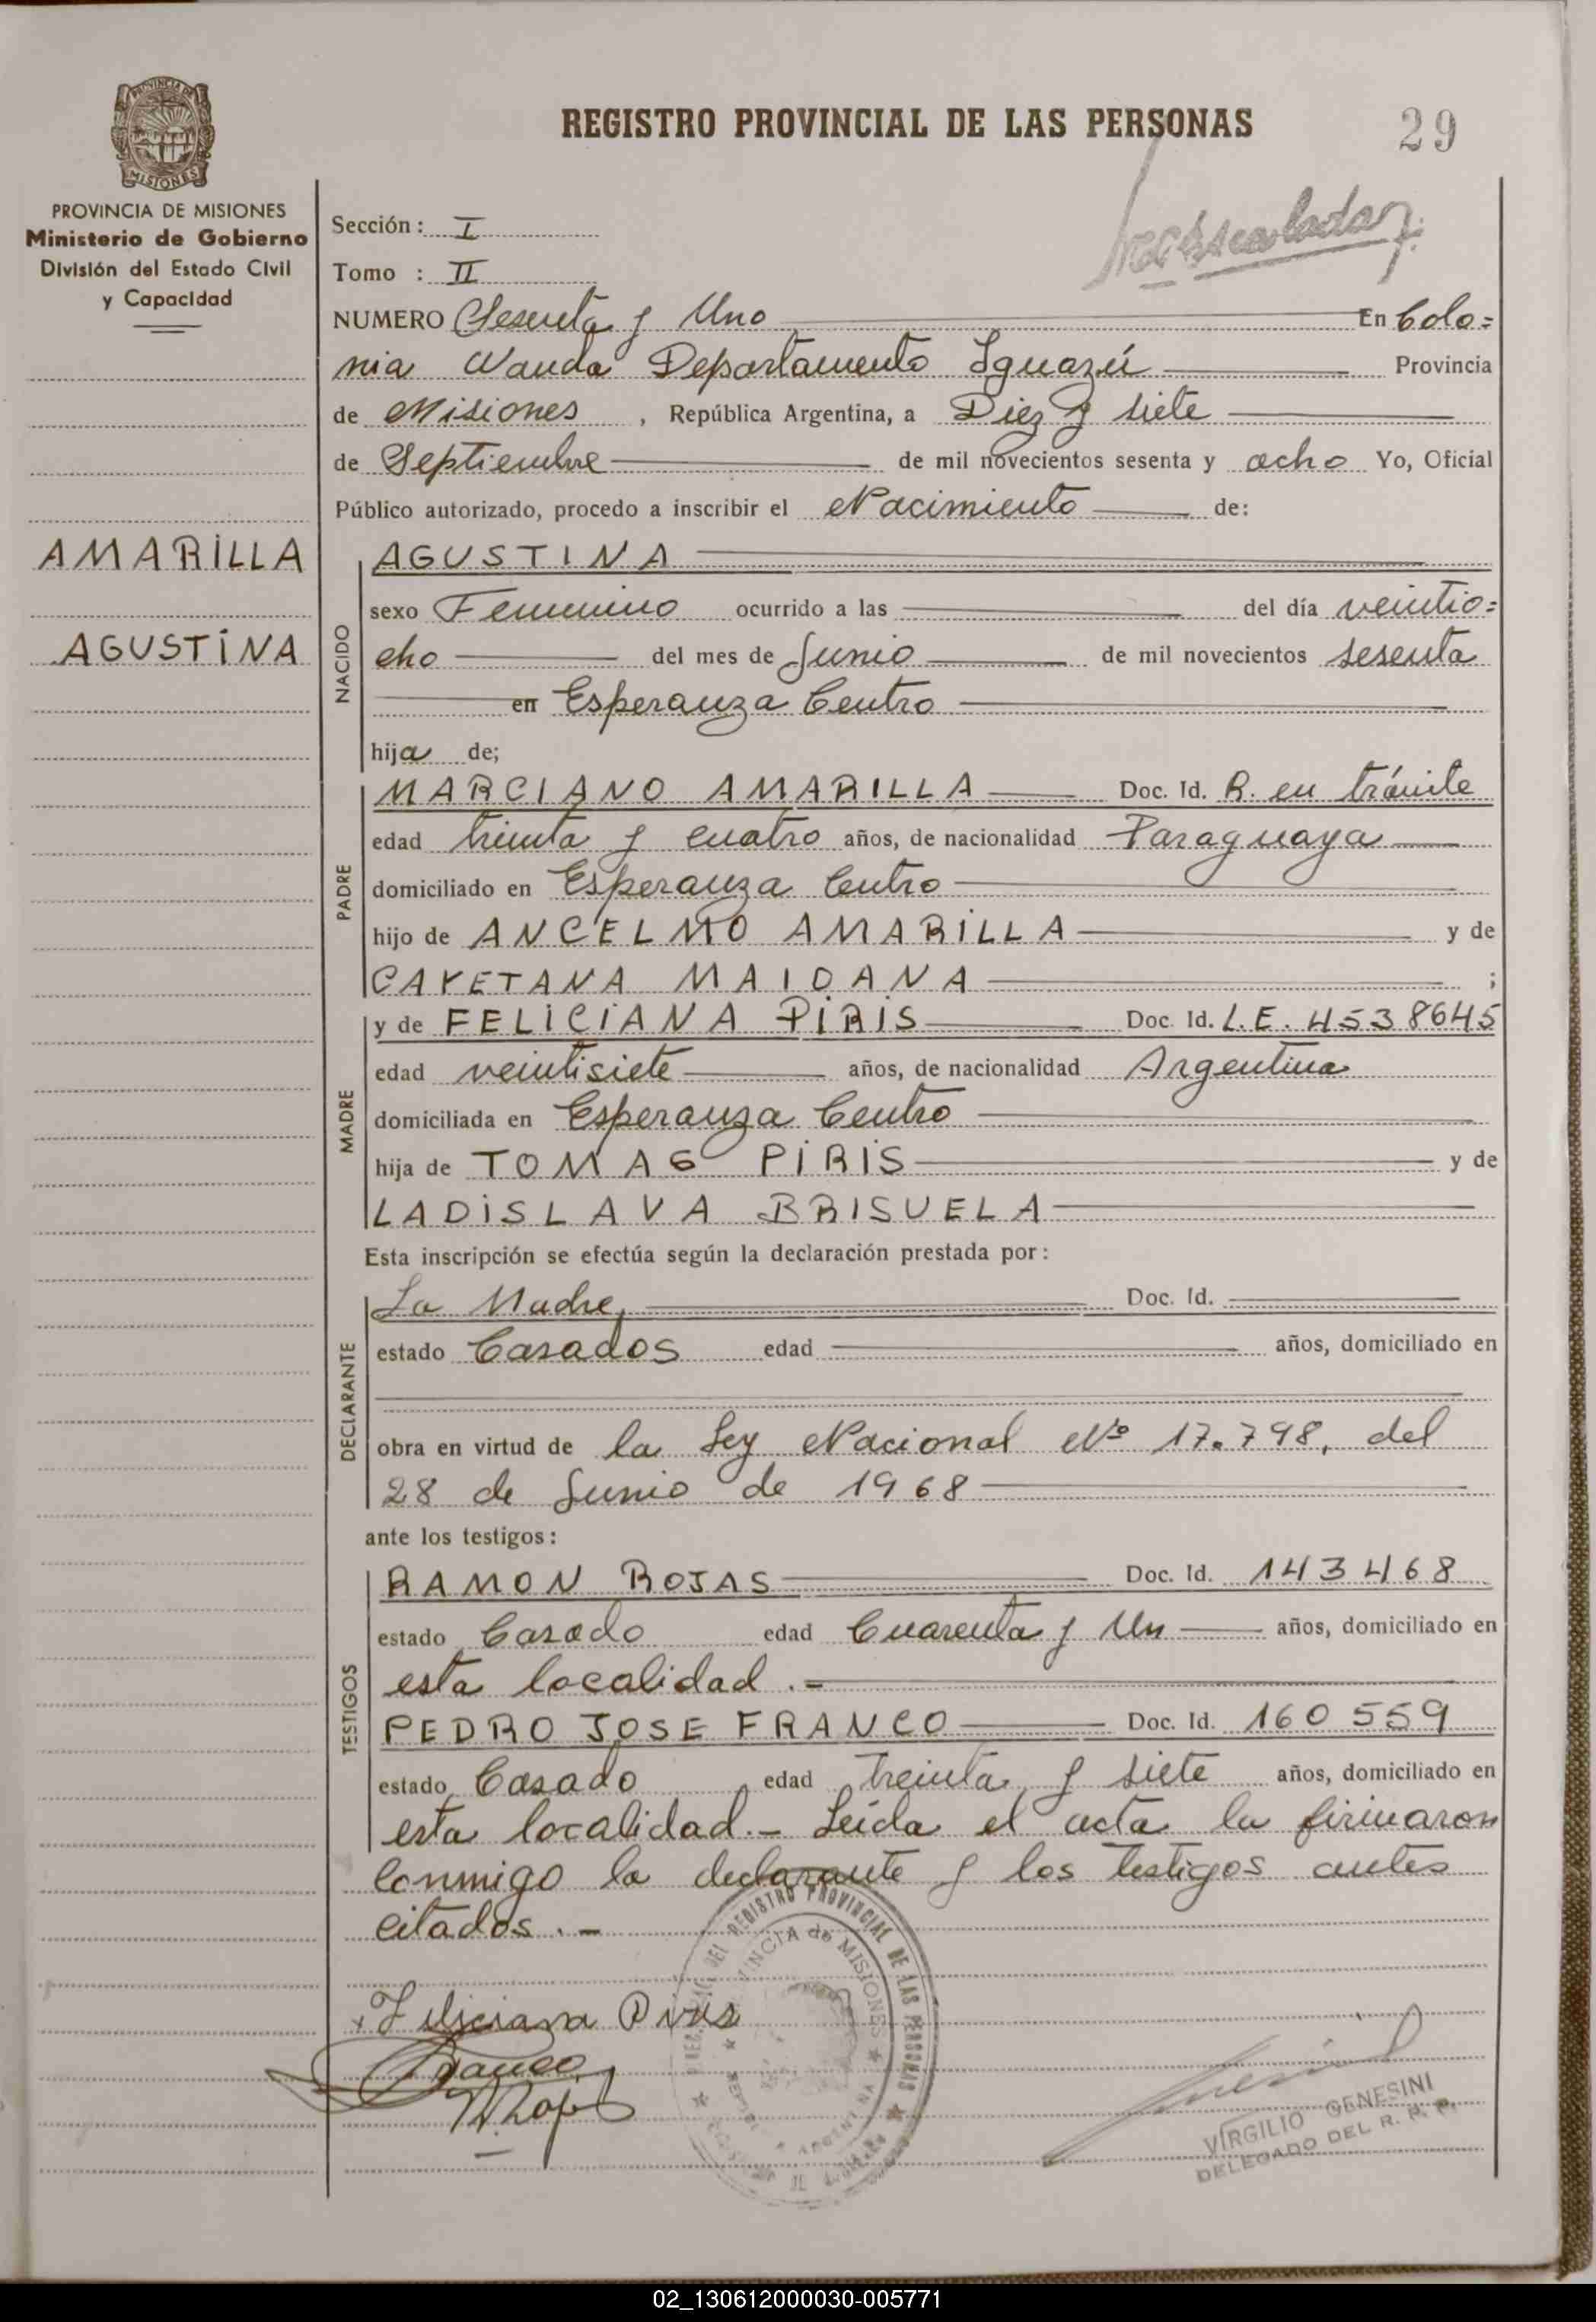 REGISTRO PROVINCIAL DE LAS PERSONAS
29
PROVINCIA DE MISIONES
Ministerio de Gobierno
División del Estado Civil
y Capacidad
Sección: I
Tomo : II
NUMERO Sesenta y Uno En Colo=
nia Wanda Departamento Iguazú Provincia
de Misiones, República Argentina, a Diez y siete
de Septiembre de mil novecientos sesenta y ocho Yo, Oficial
Público autorizado, procedo a inscribir el Nacimiento de:
AMARILLA
AGUSTINA
AGUSTINA
NACIDO
sexo Femenino ocurrido a las del día veintio=
cho del mes de Junio de mil novecientos sesenta
en Esperanza Centro
hija de;
PADRE
MARCIANO AMARILLA Doc. Id. R. en trámite
edad treinta y cuatro años, de nacionalidad Paraguaya
domiciliado en Esperanza Centro
hijo de ANCELMO AMARILLA y de
CAYETANA MAIDANA ;
MADRE
y de FELICIANA PIRIS Doc. Id. L.E. 4538645
edad veintisiete años, de nacionalidad Argentina
domiciliada en Esperanza Centro
hija de TOMAS PIRIS y de
LADISLAVA BRISUELA
Esta inscripción se efectúa según la declaración prestada por:
DECLARANTE
La Madre, Doc. Id.
estado Casados edad años, domiciliado en
obra en virtud de la Ley Nacional Nº 17.798, del
28 de Junio de 1968
ante los testigos:
TESTIGOS
RAMON ROJAS Doc. Id. 143468
estado Casado edad Cuarenta y Un años, domiciliado en
esta localidad.=
PEDRO JOSE FRANCO Doc. Id. 160559
estado Casado edad treinta y siete años, domiciliado en
esta localidad.- Leída el acta la firmaron
conmigo la declarante y los testigos antes
citados.-
DEL REGISTRO PROVINCIAL DE LAS PERSONAS
de MISIONES
x Feliciana Piris
Franco
VIRGILIO GENESINI
DELEGADO DEL R. P. P.
02_130612000030-005771